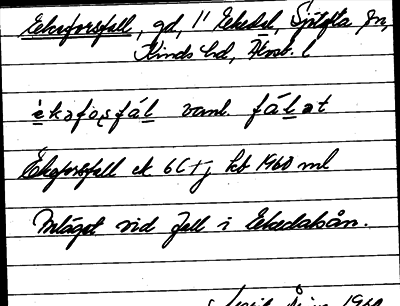 Ekeforsfall, gd, 1/1 Ekedal, Sjötofta sn,
Kinds hd, Älvsb. l
èkəfo̜sfál vanl. fálət
Ekeforsfall ek 6C+j kb 1960 ml
Beläget vid fall i Ekedalsån.
1960